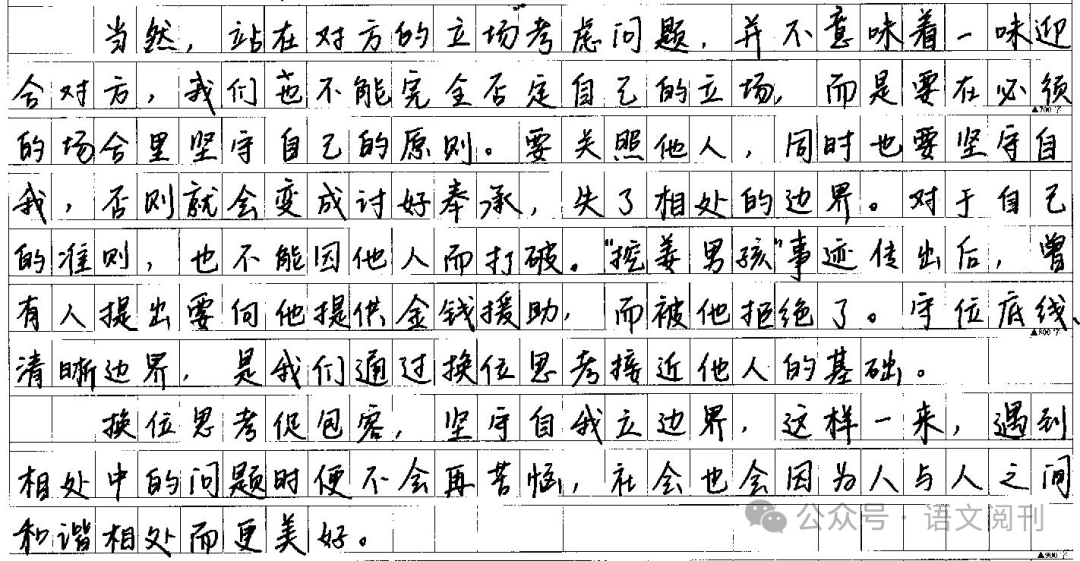 当然，站在对方的立场考虑问题，并不意味着一味迎
合对方，我们也不能完全否定自己的立场，而是要在必须
▲700字
的场合里坚守自己的原则。要关照他人，同时也要坚守自
我，否则就会变成讨好奉承，失了相处的边界。对于自己
的准则，也不能因他人而打破。“挖姜男孩”事迹传出后，曾
有人提出要向他提供金钱援助，而被他拒绝了。守位底线、
▲800字
清晰边界，是我们通过换位思考接近他人的基础。
换位思考促包容，坚守自我立边界，这样一来，遇到
相处中的问题时便不会再苦恼，社会也会因为人与人之间
和谐相处而更美好。
公众号·语文阅刊
▲900字